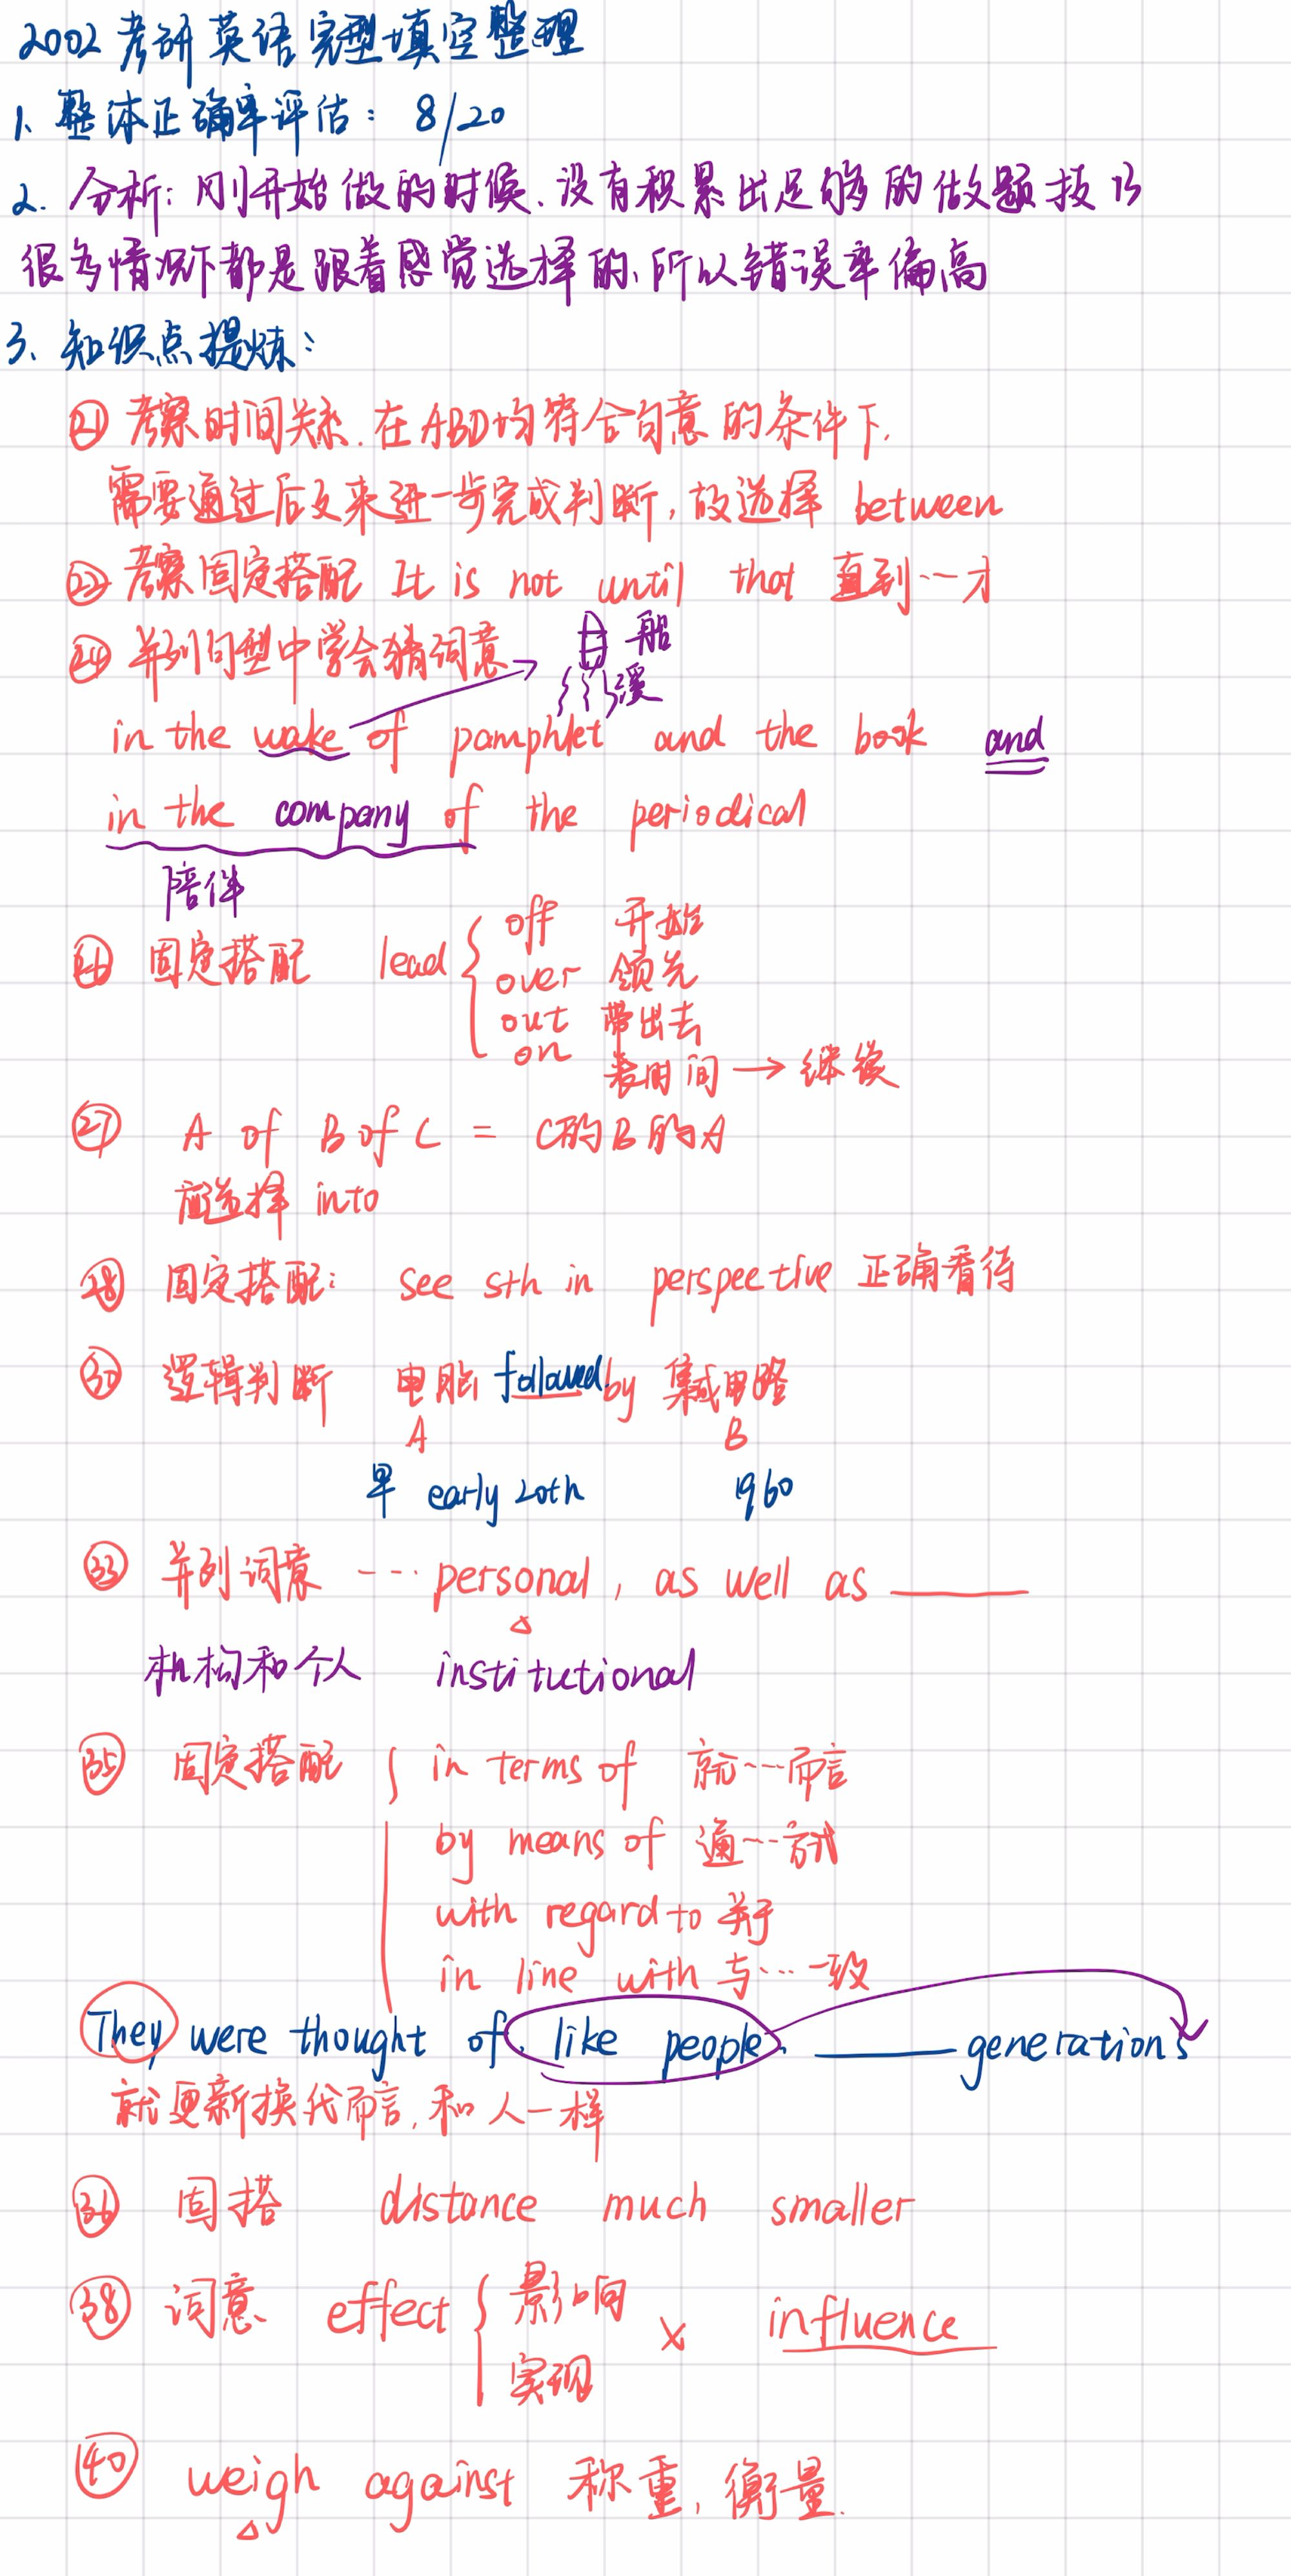 2002考研英语完型填空整理
1、整体正确率评估：8/20
2. 分析：刚开始做的时候、没有积累出足够的做题技巧
很多情况下都是跟着感觉选择的、所以错误率偏高
3、知识点提炼：
㉑ 考察时间关系．在ABD均符合句意的条件下，
需要通过后文来进一步完成判断，故选择 between
㉒ 考察固定搭配 It is not until that 直到……才
㉔ 并列句型中学会猜词意
船
浪
in the wake of pamphlet and the book and
in the company of the periodical
陪伴
㉖ 固定搭配 lead
off 开始
over 领先
out 带出去
on 表时间 → 继续
㉗ A of B of C = C的B的A
应选择 into
㉘ 固定搭配： see sth in perspective 正确看待
㉚ 逻辑判断 电脑 followed by 集成电路
A B
早 early 20th 1960
㉝ 并列词意 …… personal, as well as ____
机构和个人 institutional
㉟ 固定搭配
in terms of 就……而言
by means of 通……方式
with regard to 关于
in line with 与……一致
They were thought of, like people, ____ generations
就更新换代而言，和人一样
㊱ 固搭 distance much smaller
㊳ 词意 effect 影响 × influence
实现
㊵ weigh against 称重，衡量．